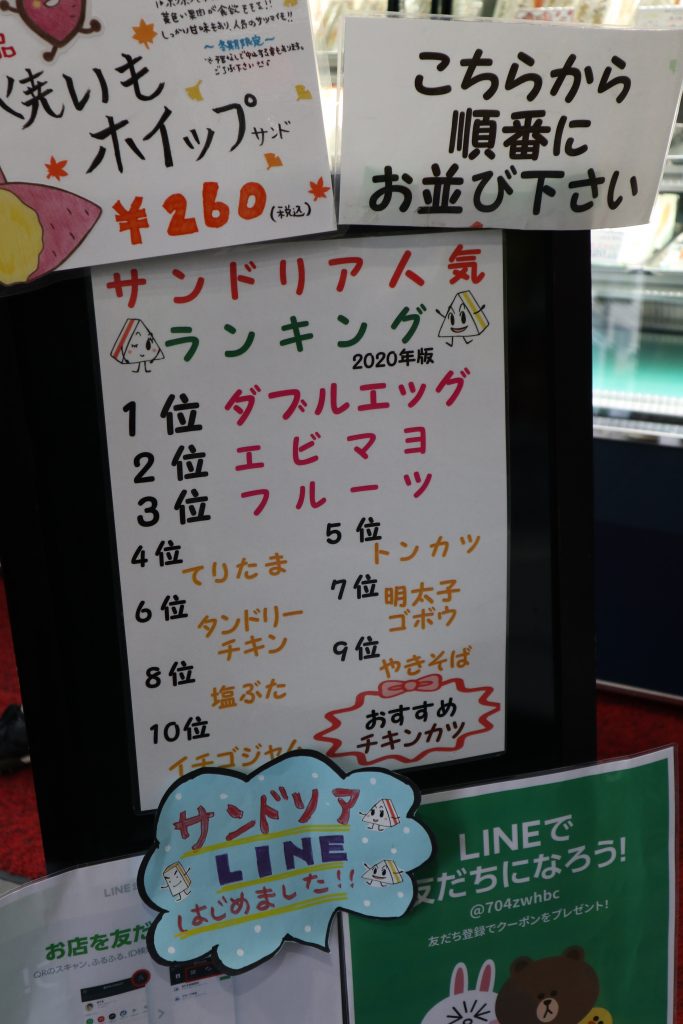 品
黄色い果肉が食欲をそそる!!
しっかり甘味もあり、人気のサツマイモ!!
～冬期限定～
ご了承下さい
焼いも
ホイップサンド
¥260(税込)
こちらから
順番に
お並び下さい
サンドリア人気
ランキング
2020年版
1位 ダブルエッグ
2位 エビマヨ
3位 フルーツ
4位 てりたま
5位 トンカツ
6位 タンドリー
チキン
7位 明太子
ゴボウ
8位 塩ぶた
9位 やきそば
10位 イチゴジャム
おすすめ
チキンカツ
サンドリア
LINE
はじめました!!
LINE
お店を友だ
QRのスキャン、ふるふる、ID検
LINEで
友だちになろう!
@704zwhbc
友だち登録でクーポンをプレゼント!